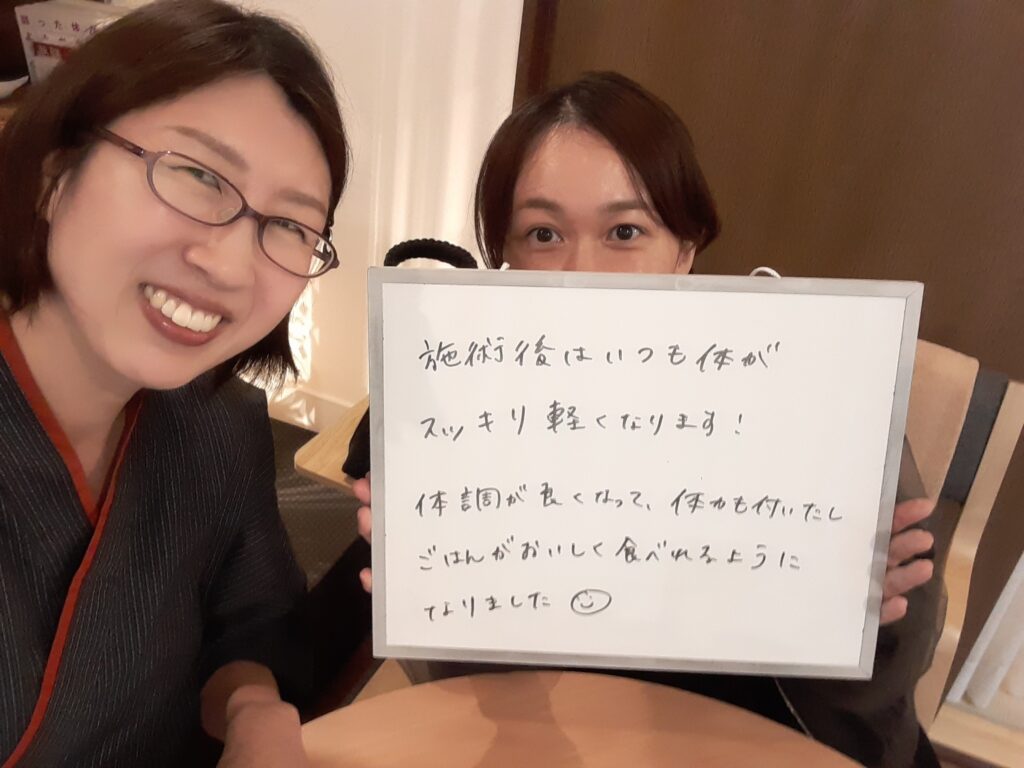 施術後はいつも体が
スッキリ軽くなります!
体調が良くなって、体力も付いたし
ごはんがおいしく食べれるように
なりました